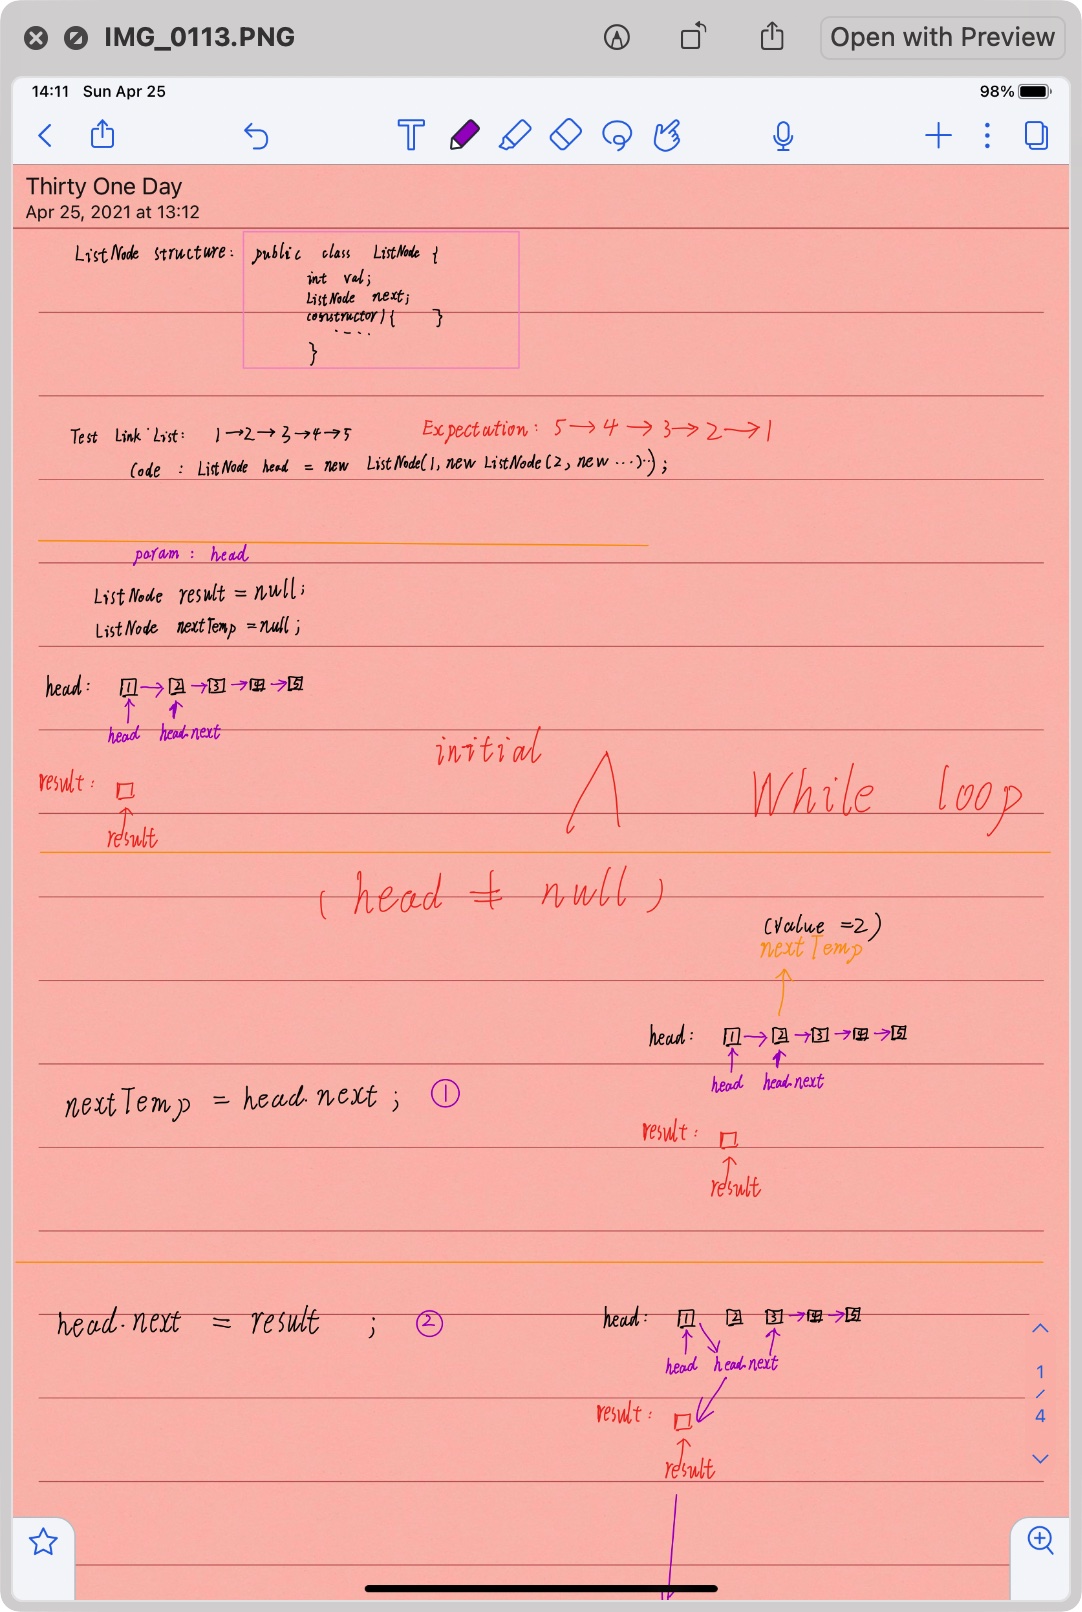 IMG_0113.PNG
Open with Preview
14:11 Sun Apr 25
98%
T
Thirty One Day
Apr 25, 2021 at 13:12
ListNode structure: public class ListNode {
int val;
ListNode next;
constructor) { }
.....
}
Test Link List: 1→2→3→4→5 Expectation: 5→4→3→2→1
Code : ListNode head = new ListNode(1, new ListNode(2, new ...)..);
param : head
ListNode result = null;
ListNode nextTemp = null;
head: 1→2→3→4→5
head head.next
initial
result:
While loop
result
(head ≠ null)
(value =2)
nextTemp
head: 1→2→3→4→5
head head.next
nextTemp = head.next; ①
result:
result
head.next = result ; ②
head: 1 2 3→4→5
head head.next
result:
result
1
/
4